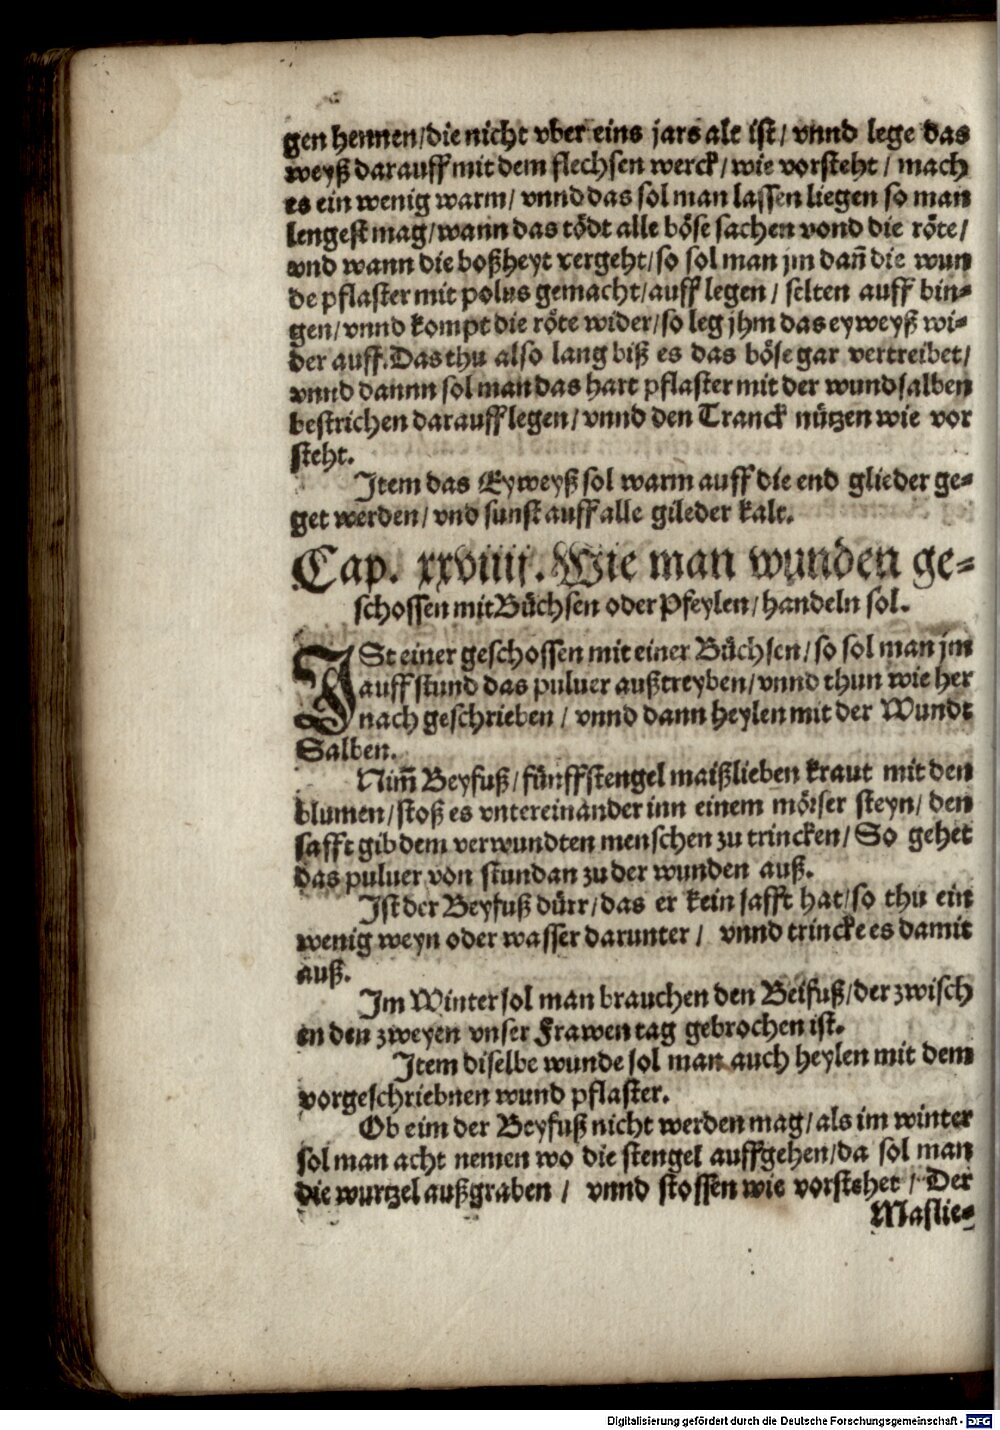 gen hennen/die nicht vber eins jars alt ist/ vnnd lege das
weyß darauff mit dem flechsen werck/ wie vorsteht/ mach
es ein wenig warm/ vnnd das sol man lassen liegen so man
lengest mag/wann das tödt alle böse sachen vond die röte/
vnd wann die boßheyt vergeht/so sol man jm dañ die wun
de pflaster mit polus gemacht/auff legen/ selten auff bin-
gen/vnnd kompt die röte wider/so leg jhm das eyweyß wi-
der auff. Das thu also lang biß es das böse gar vertreibet/
vnnd dannn sol man das hart pflaster mit der wundsalben
bestrichen darauff legen/ vnnd den Tranck nützen wie vor
steht.
Item das Eyweyß sol warm auff die end glieder ge-
get werden/ vnd sunst auff alle gileder kalt.
Cap. xxviiij. Wie man wunden ge-
schossen mit Büchsen oder Pfeylen/handeln sol.
ISt einer geschossen mit einer Büchsen/so sol man jm
auff stund das puluer außtreyben/vnnd thun wie her
nach geschrieben/ vnnd dann heylen mit der Wundt
Salben.
Nim̃ Beyfuß/fünff stengel maißlieben kraut mit den
blumen/stoß es vntereinander inn einem mörser steyn/ den
safft gib dem verwundten menschen zu trincken/ So gehet
das puluer von stundan zu der wunden auß.
Ist der Beyfuß dürr/das er kein safft hat/so thu ein
wenig weyn oder wasser darunter/ vnnd trincke es damit
auß.
Im Winter sol man brauchen den Beifuß/der zwisch
en den zweyen vnser Frawen tag gebrochen ist.
Item diselbe wunde sol man auch heylen mit dem
vorgeschriebnen wund pflaster.
Ob eim der Beyfuß nicht werden mag/als im winter
sol man acht nemen wo die stengel auffgehen/da sol man
die wurtzel außgraben/ vnnd stossen wie vorstehet/ Der
Maslie-
Digitalisierung gefördert durch die Deutsche Forschungsgemeinschaft - DFG